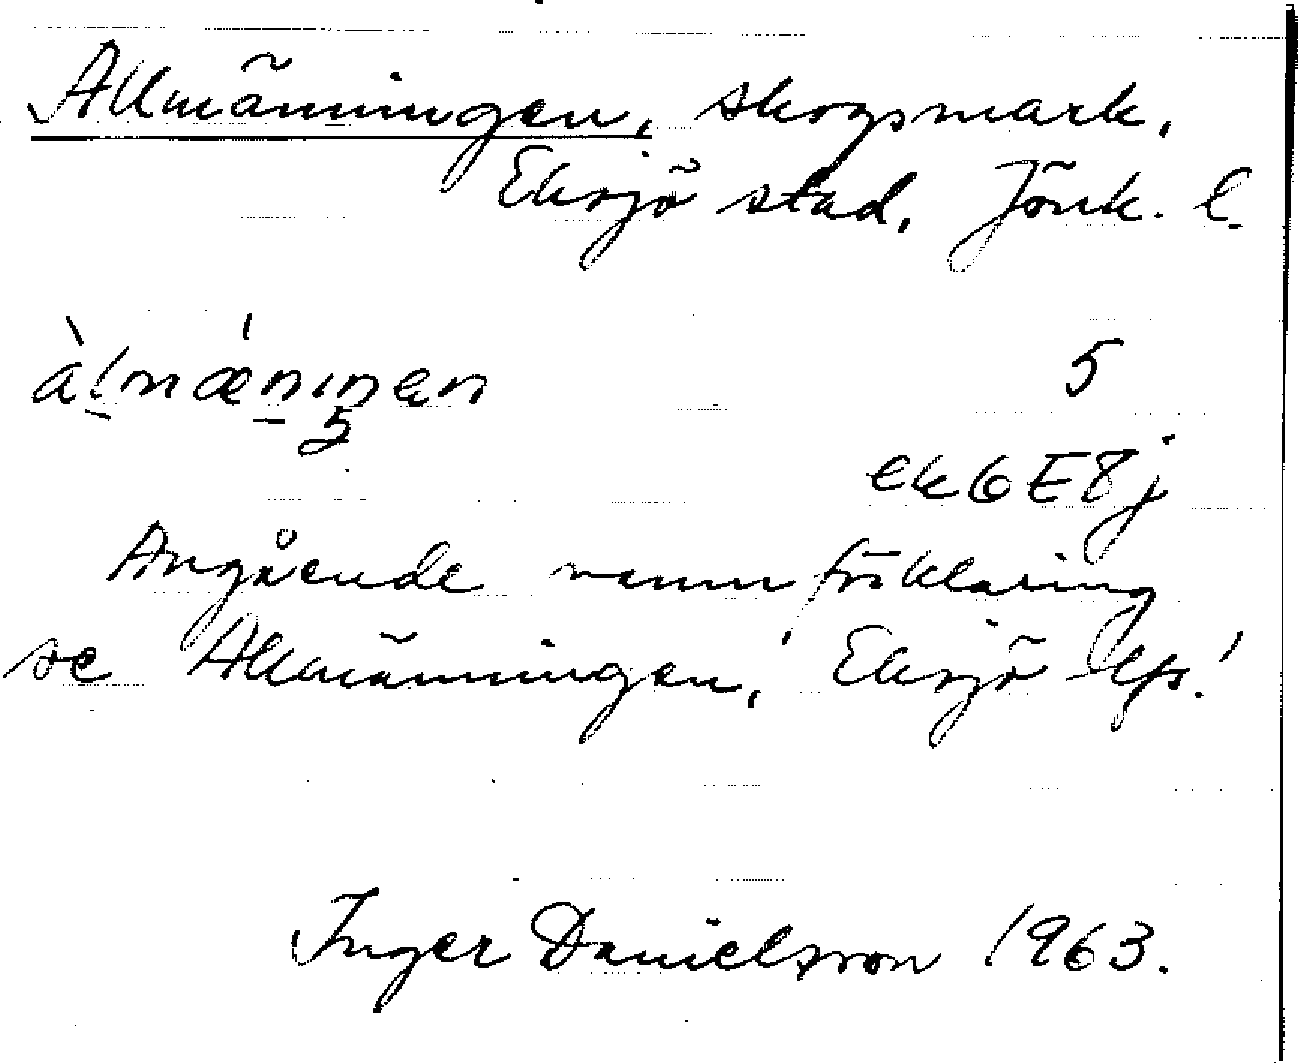 Allmänningen, skogsmark,
Eksjö stad, Jönk. l.
àlmǽnıŋen 5
5
ek 6 E 8 j
Angående namnförklaring
se Allmänningen, Eksjö lfs!
Inger Danielsson 1963.